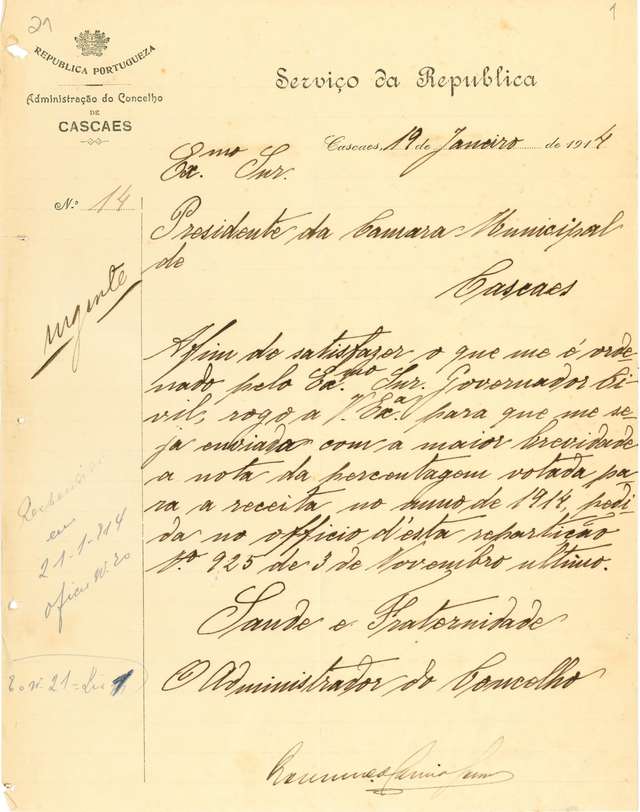 21
1
REPUBLICA PORTUGUEZA
Administração do Concelho
DE
CASCAES
Serviço da Republica
Cascaes, 19 de Janeiro de 1914
Exmo Snr.
N.º 14
Presidente da Camara Municipal
de
Cascaes
urgente
Afim de satisfazer o que me é orde-
nado pelo Exmo Snr. Governador Ci-
vil, rogo a V. Exa para que me se-
ja enviada com a maior brevidade
a nota da percentagem votada pa-
ra a receita no anno de 1914, pedi-
da no officio d'esta repartição
Nº 925 de 3 de Novembro ultimo.
em
21-1-914
oficio nº 20
Saude e Fraternidade
O Administrador do Concelho